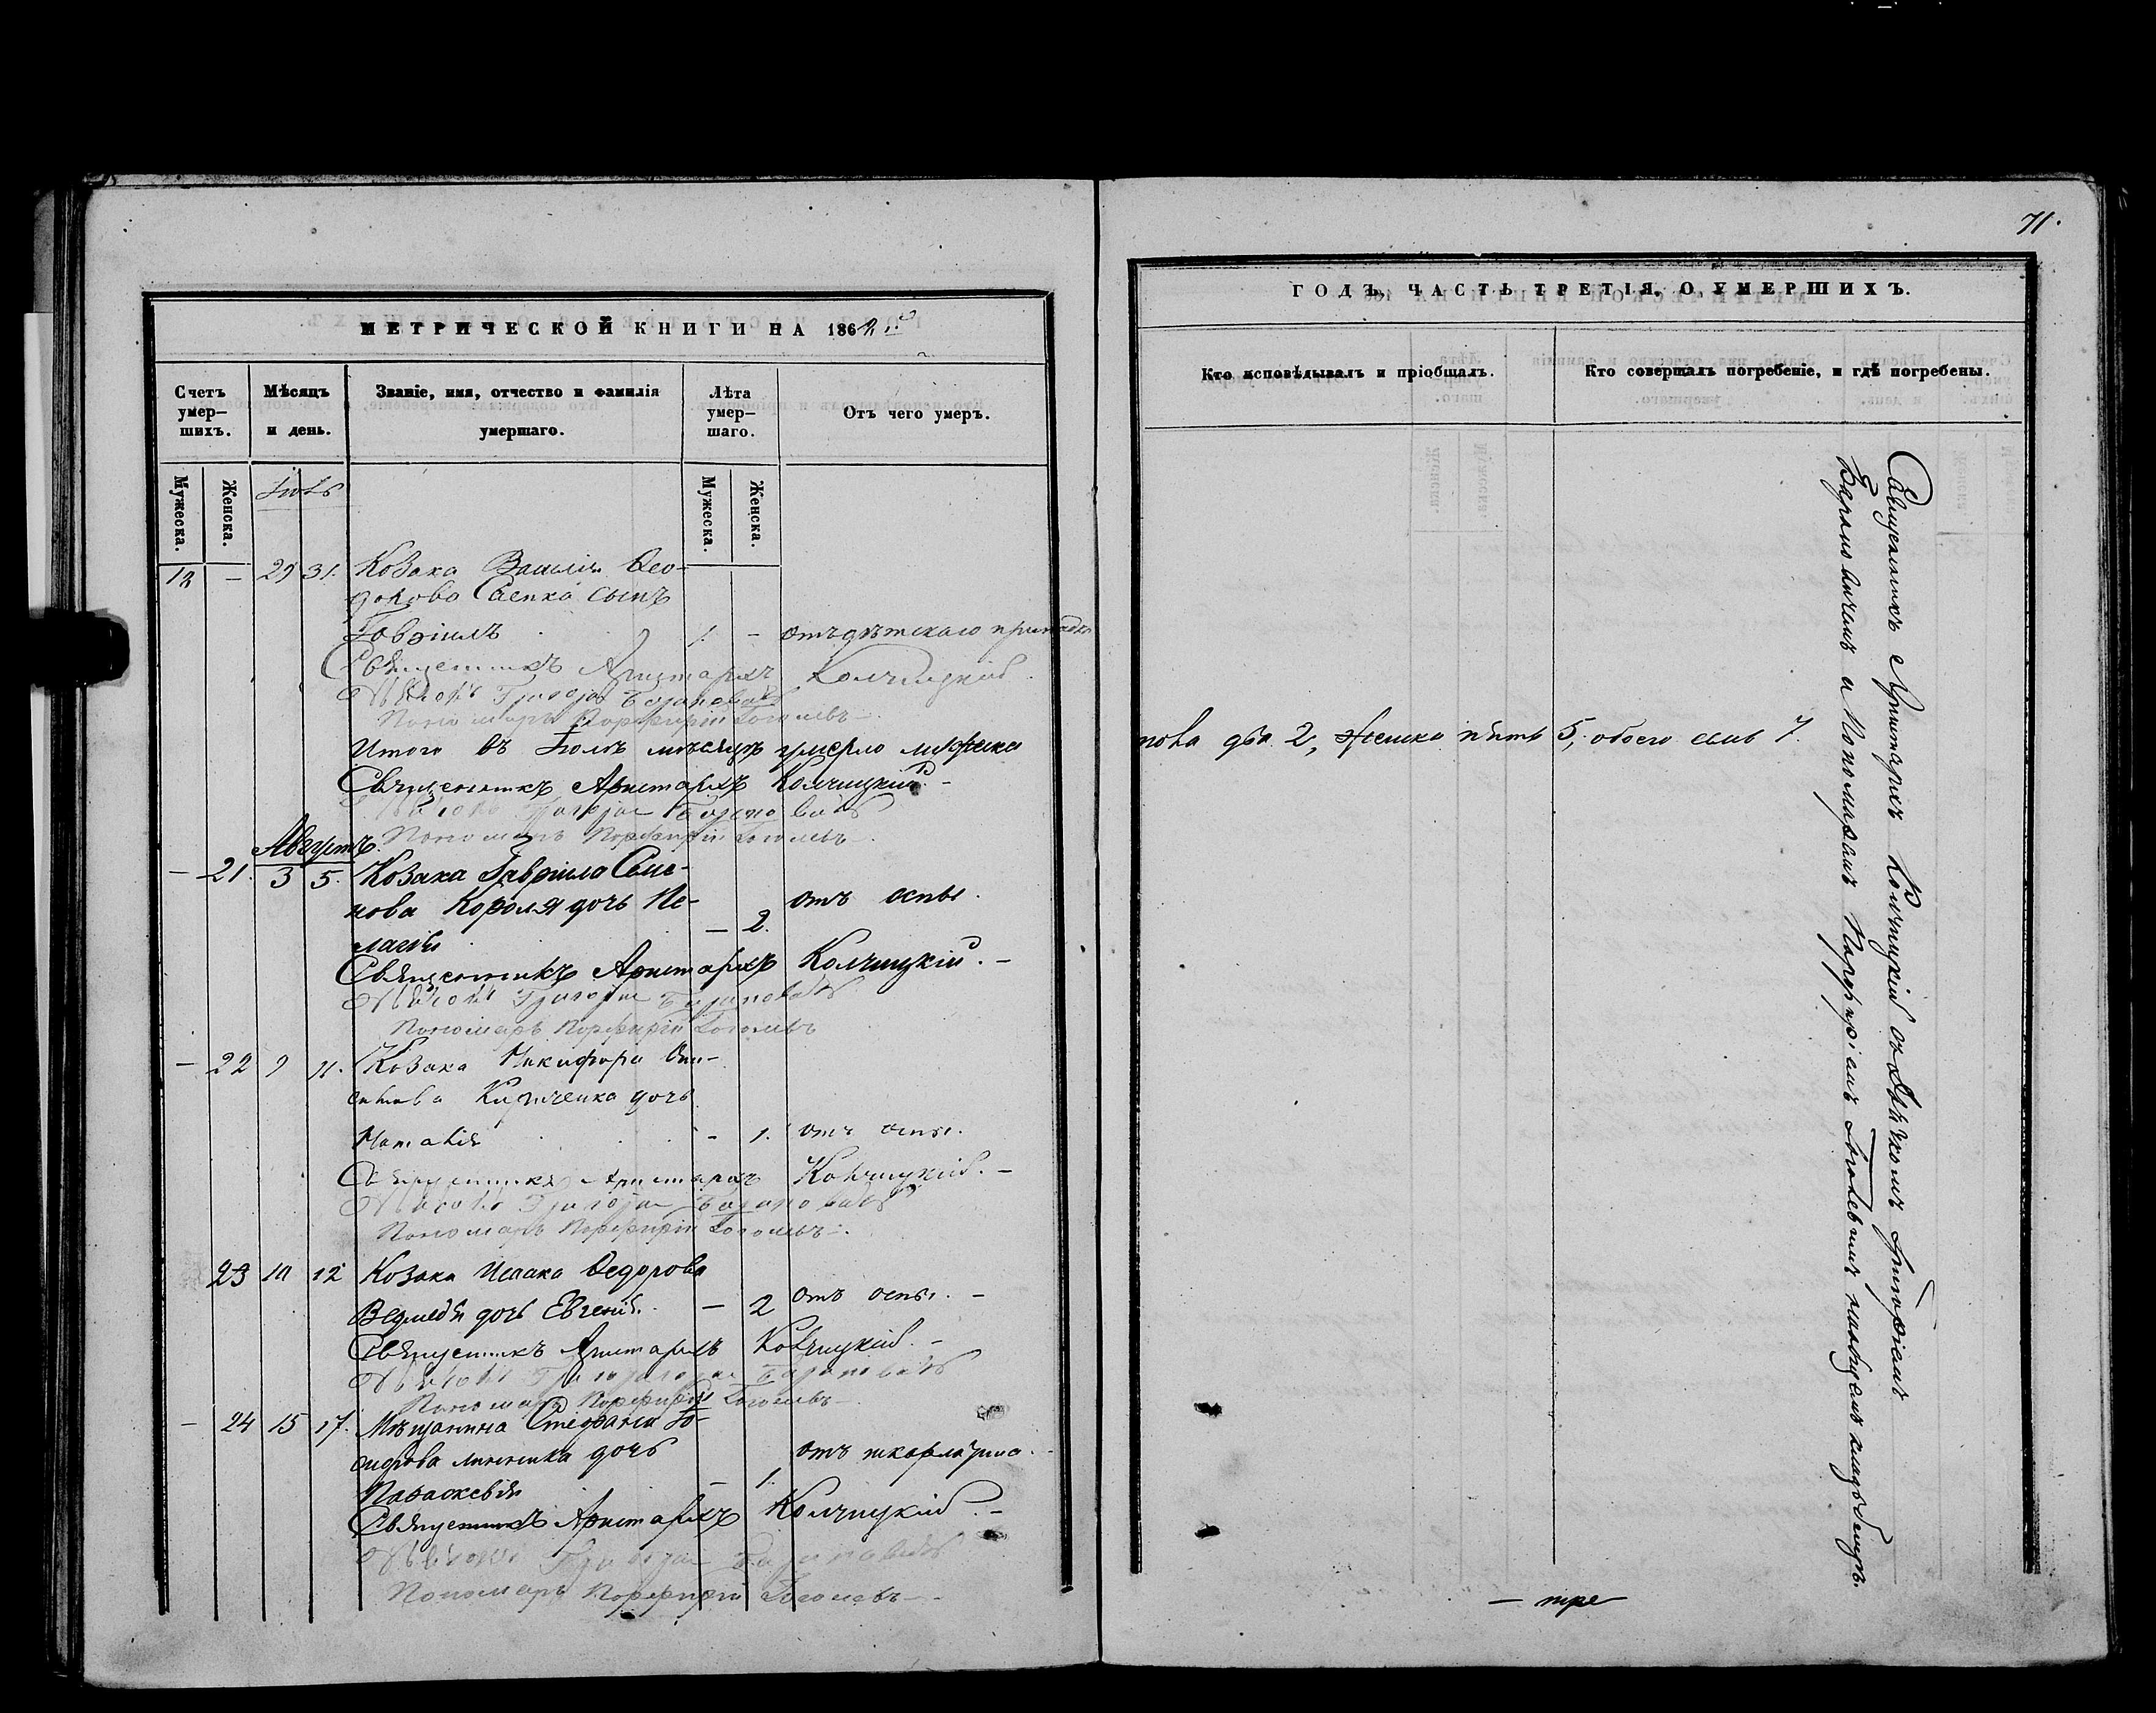 71.
МЕТРИЧЕСКОЙ КНИГИ НА 1862й
Счетъ умер-шихъ.
Мѣсяцъ и день.
Званіе, имя, отчество и фамилія умершаго.
Лѣта умер-шаго.
Отъ чего умеръ.
Мужеска.
Женска.
Мужеска.
Женска.
Іюль
12 - 29 31. Козака Василія Ѳео-
дорова сынъ
Гавріилъ 1. - отъ дѣтскаго припадка
Священникъ Аристархъ Колчицкій.
Дьячокъ Григорій
Пономарь Порфирій Гоголевъ.
Итого въ Іюлѣ мѣсяцѣ умерло мужеска
Священникъ Аристархъ Колчицкій.-
Дьячокъ Григорій
Пономарь Порфирій Гоголевъ.
Августъ.
- 21. 3 5. Козака Гавріила Семе-
нова Короля дочь Пе-
лагія - 2. отъ оспы.
Священникъ Аристархъ Колчицкій.-
Дьячокъ Григорій
Пономарь Порфирій Гоголевъ
- 22 9 11. Козака Никифора
Кириченка дочь
Наталія - 1. отъ оспы.
Священникъ Аристархъ Колчицкій.-
Дьячокъ Григорій
Пономарь Порфирій Гоголевъ.
23 10 12 Козака Исаака Ѳедорова
Ведмедя дочь Евгенія. - 2 отъ оспы.-
Священникъ Аристархъ Колчицкій.-
Дьячокъ Григорій
Пономарь Порфирій Гоголевъ
- 24 15 17. Мѣщанина Стефана
дочь
Параскевія - 1. отъ шкарлатина.
Священникъ Аристархъ Колчицкій.-
Дьячокъ Григорій
Пономарь Порфирій Гоголевъ.
ГОДЪ, ЧАСТЬ ТРЕТІЯ, О УМЕРШИХЪ.
Кто исповѣдывалъ и пріобщалъ.
Кто совершалъ погребеніе, и гдѣ погребены.
пола два 2, женска пять 5, обоего семь 7.
Священникъ Аристархъ Колчицкій съ Дьячкомъ Григоріемъ
и Пономаремъ Порфиріемъ Гоголевымъ на общемъ кладбищѣ.
- тре